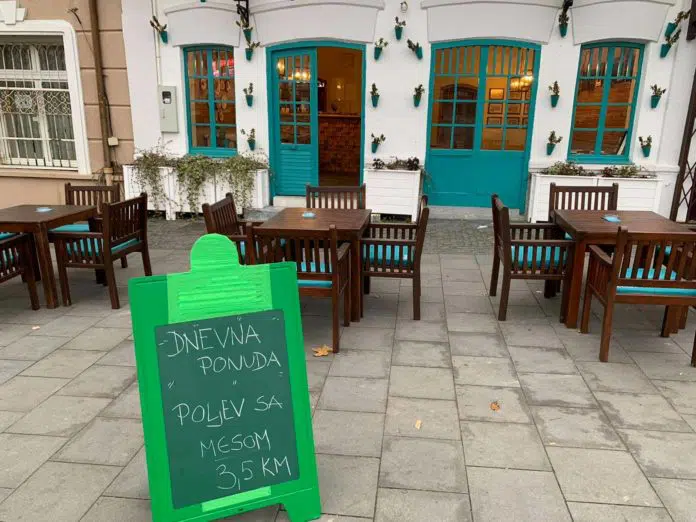 „DNEVNA
PONUDA
"
POLJEV SA
MESOM
3,5 KM